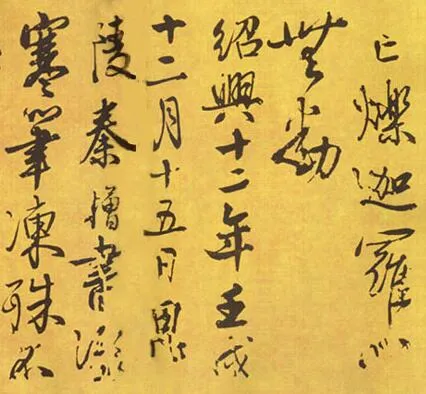 亡爍迦羅心
無動
紹興十二年壬戌
十二月十五日
陵秦憎書
寒筆凍殊不